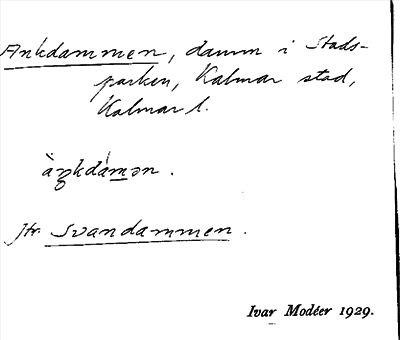 Ankdammen, damm i Stads-
parken, Kalmar stad,
Kalmar l.
àŋkdámən.
Jfr. Svandammen.
Ivar Modéer 1929.